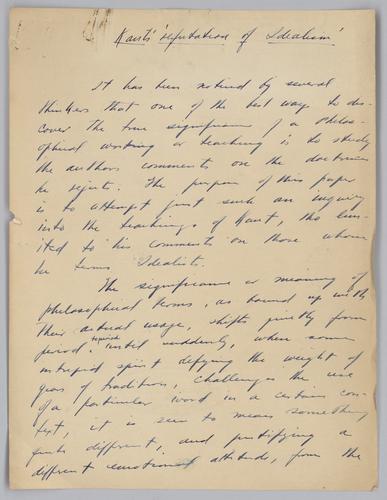 Kant's 'refutation of Idealism'
It has been noticed by several
thinkers that one of the best ways to dis-
cover the true significance of a philos-
ophical writing or teaching is to study
the authors comments on the doctrines
he rejects. The purpose of this paper
is to attempt just such an inquiry
into the teachings of Kant, tho lim-
ited to his comments on those whom
he terms Idealists.
The significance or meaning of
philosophical terms, as bound up with
their actual usage, shifts from
period, until suddenly, when some
intrepid spirit defying the weight of
years of tradition, challenges the use
of a particular word in a certain con-
text, it is seen to mean something
quite different, and justifying a
different emotional attitude, from the